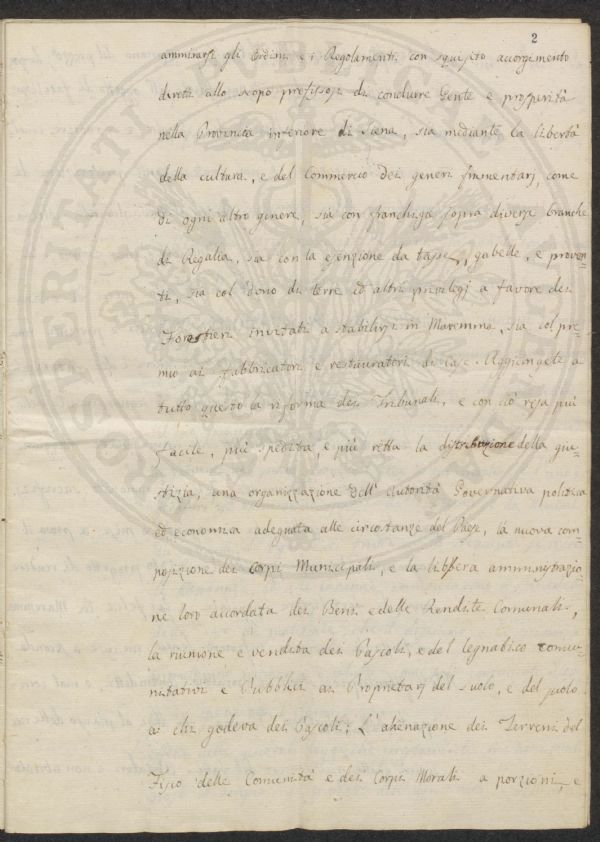 2
ammirarsi gli Ordini e i Regolamenti con squisito accorgimento
diretti allo scopo prefissosi di condurre Gente e prosperità
nella Provincia inferiore di Siena, sia mediante la libertà
della cultura, e del Commercio dei generi frumentarj, come
di ogni altro genere, sia con franchigia sopra diverse branche
di Regalia, sia con la esenzione da tasse, gabelle, e proven-
ti, sia col dono di terre ed altri privilegj a favore dei
Forestieri invitati a stabilirsi in Maremma, sia col pre-
mio ai fabbricatori e restauratori di case. Aggiungete a
tutto questo la riforma dei Tribunali, e con ciò resa più
facile, più spedita, e più retta la distribuzione della giu-
stizia, una organizzazione dell' autorità Governativa politica
ed economica adeguata alle circostanze del Paese, la nuova com-
posizione dei Corpi Municipali, e la libera amministrazio-
ne loro accordata dei Beni e delle Rendite Comunali,
la riunione e vendita dei Pascoli, e del legnatico comu-
nitativi e Pubblici ai Proprietarj del suolo, e del suolo
ai chi godeva dei Pascoli; L'alienazione dei Terreni del
Fisco delle Comunità e dei Corpi Morali a porzioni, e
PUBLICAE
PROSPERITATI